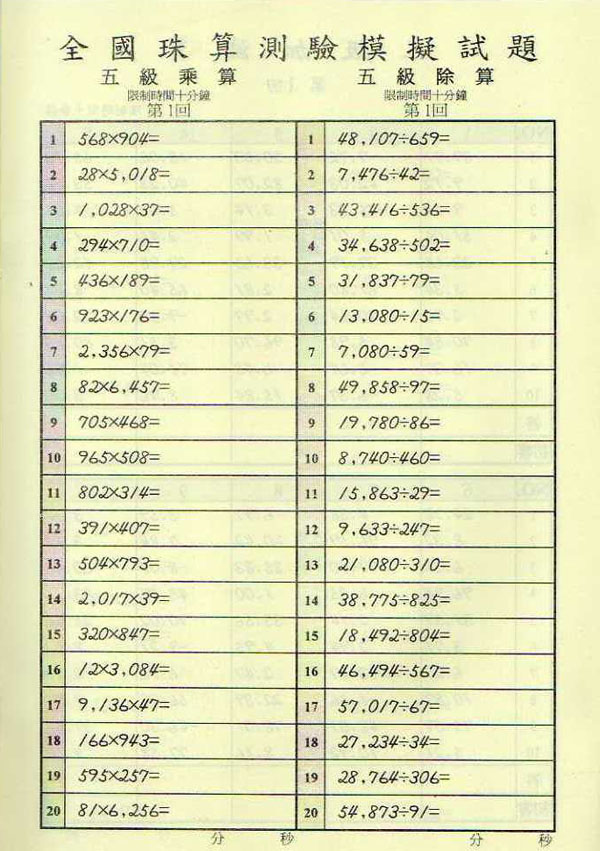 全國珠算測驗模擬試題
五級乘算 五級除算
限制時間十分鐘 限制時間十分鐘
第1回 第1回
1 568×904= 1 48,107÷659=
2 28×5,018= 2 7,476÷42=
3 1,028×37= 3 43,416÷536=
4 294×710= 4 34,638÷502=
5 436×189= 5 31,837÷79=
6 923×176= 6 13,080÷15=
7 2,356×79= 7 7,080÷59=
8 82×6,457= 8 49,858÷97=
9 705×468= 9 19,780÷86=
10 965×508= 10 8,740÷460=
11 802×314= 11 15,863÷29=
12 391×407= 12 9,633÷247=
13 504×793= 13 21,080÷310=
14 2,017×39= 14 38,775÷825=
15 320×847= 15 18,492÷804=
16 12×3,084= 16 46,494÷567=
17 9,136×47= 17 57,017÷67=
18 166×943= 18 27,234÷34=
19 595×257= 19 28,764÷306=
20 81×6,256= 20 54,873÷91=
分 秒 分 秒